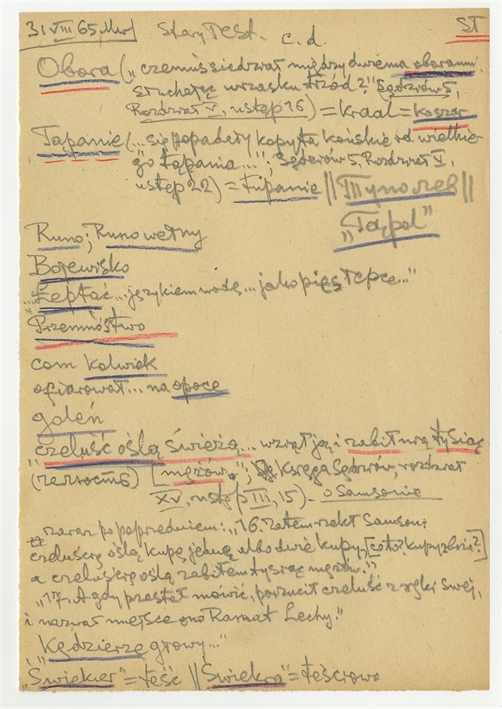 31 VIII 65, Mur] Stary Test. c. d. ST
Obora („czemuś siedział między dwiema oborami
słuchając wrzasku trzód?" Sędziów 5,
Rozdział V, ustęp 16) = kraal = koszar
Tąpanie (...się popadały kopyta końskie od wielkie-
go tąpania...", Sędziów 5, Rozdział V,
ustęp 22) = tupanie || Туполев ||
„Tąpol"
Runo; Runo wełny
Bojewisko
„Łeptać... językiem wodę... jako pies łepce..."
Przemóstwo
com kolwiek
ofiarował... na opoce
goleń
„czeluść oślą świeżą... wziął ją i zabił nią tysiąc
(челюсть) [mężów", Księga Sędziów, rozdział
XV, ustęp III, 15). o Samsonie
zaraz po poprzedniem: „16. zatem rzekł Samson:
czeluścią oślą kupę jedną albo dwie kupy, [cóż to? kupy złości?]
a czeluścią oślą zabiłem tysiąc mężów."
„17. A gdy przestał mówić, porzucił czeluść z ręki swej,
i nazwał miejsce ono Ramat Lechy."
Kędzierzę głowy..."
„Świekier" = teść || Świekra" = teściowa